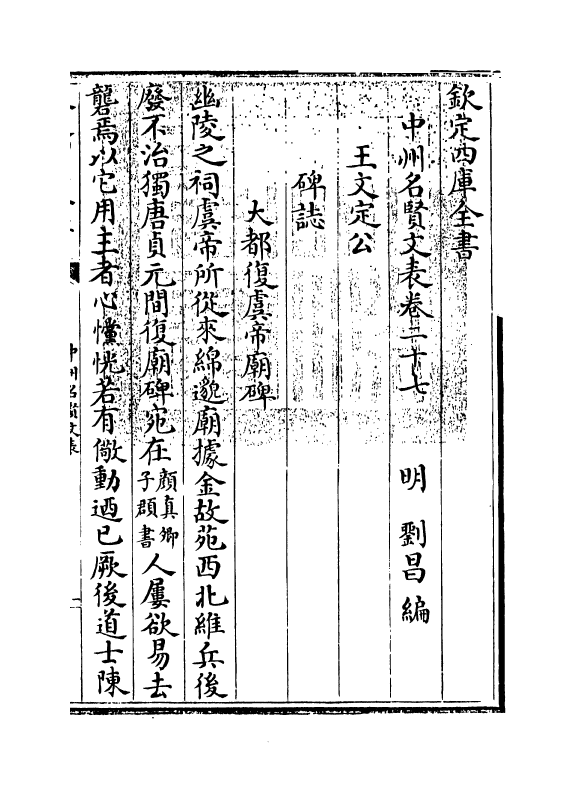 欽定四庫全書
中州名賢文表卷二十七　明　劉昌編
王文定公
碑誌
大都復虞帝廟碑
幽陵之祠虞帝所從來綿邈廟據金故苑西北維兵後
廢不治獨唐貞元間復廟碑宛在顔真卿子頵書人屢欲易去
礱焉以它用主者心懂恍若有儆動迺已厥後道士陳
中州名賢文表
一